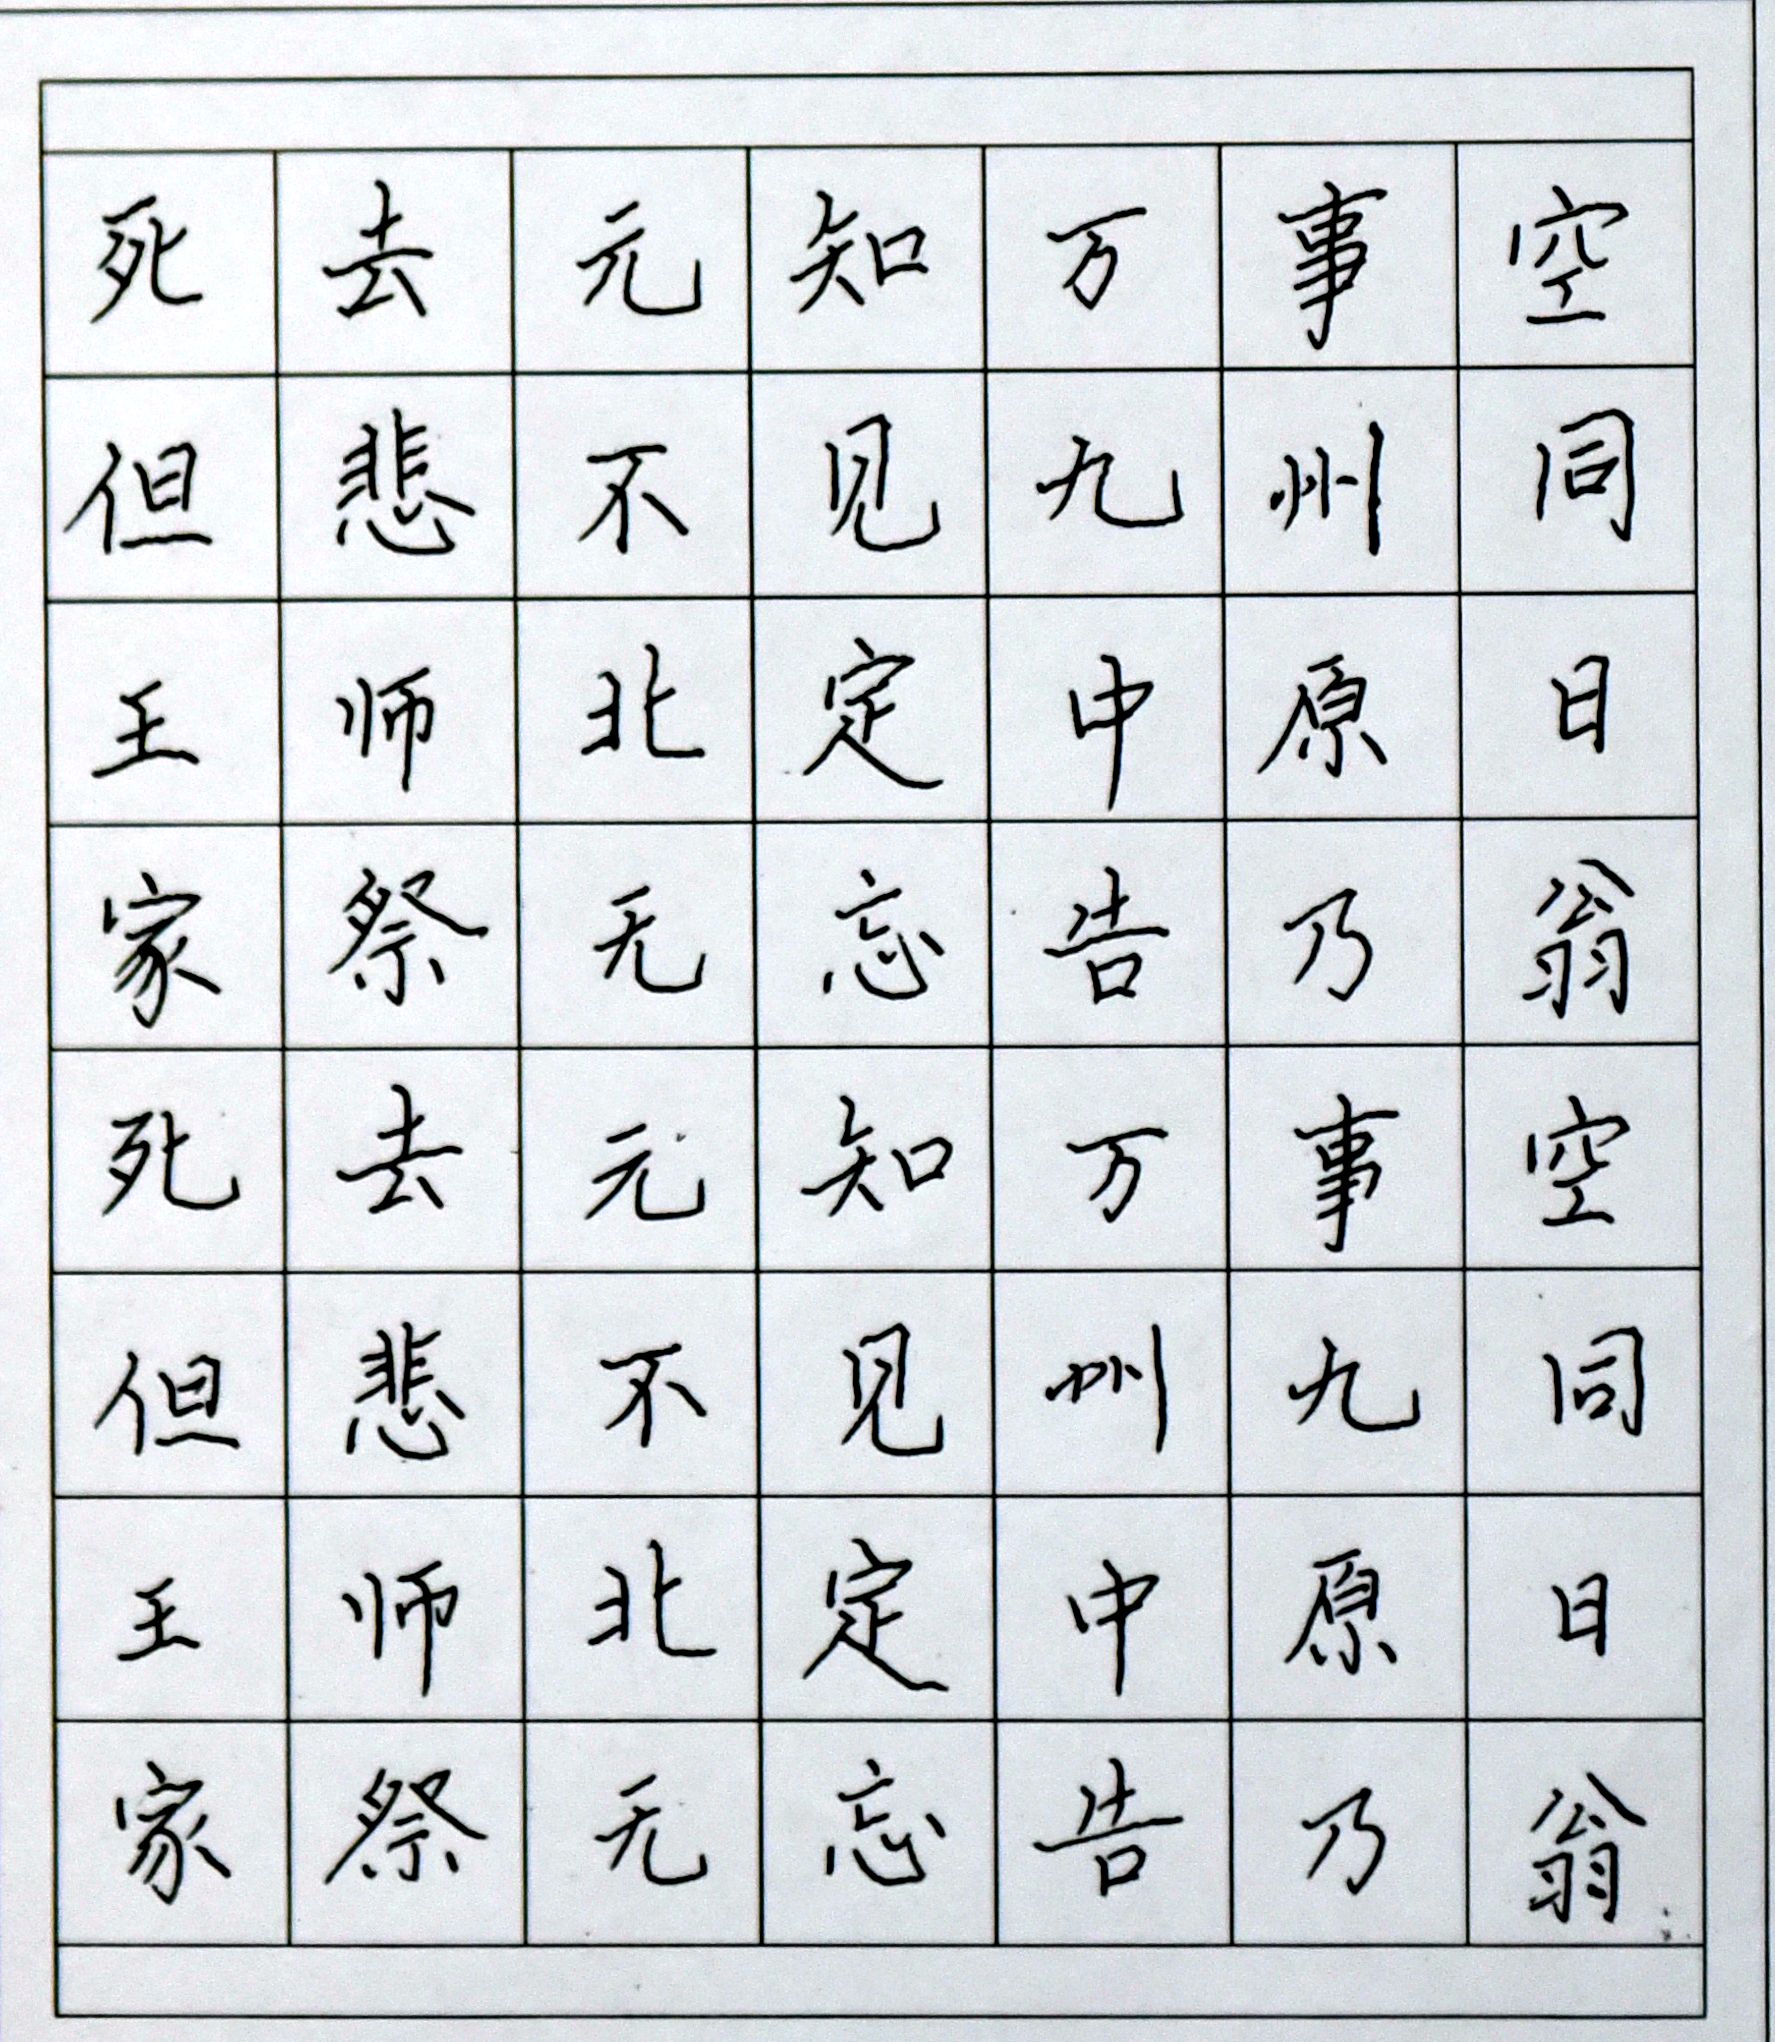 死去元知万事空
但悲不见九州同
王师北定中原日
家祭无忘告乃翁
死去元知万事空
但悲不见州九同
王师北定中原日
家祭无忘告乃翁